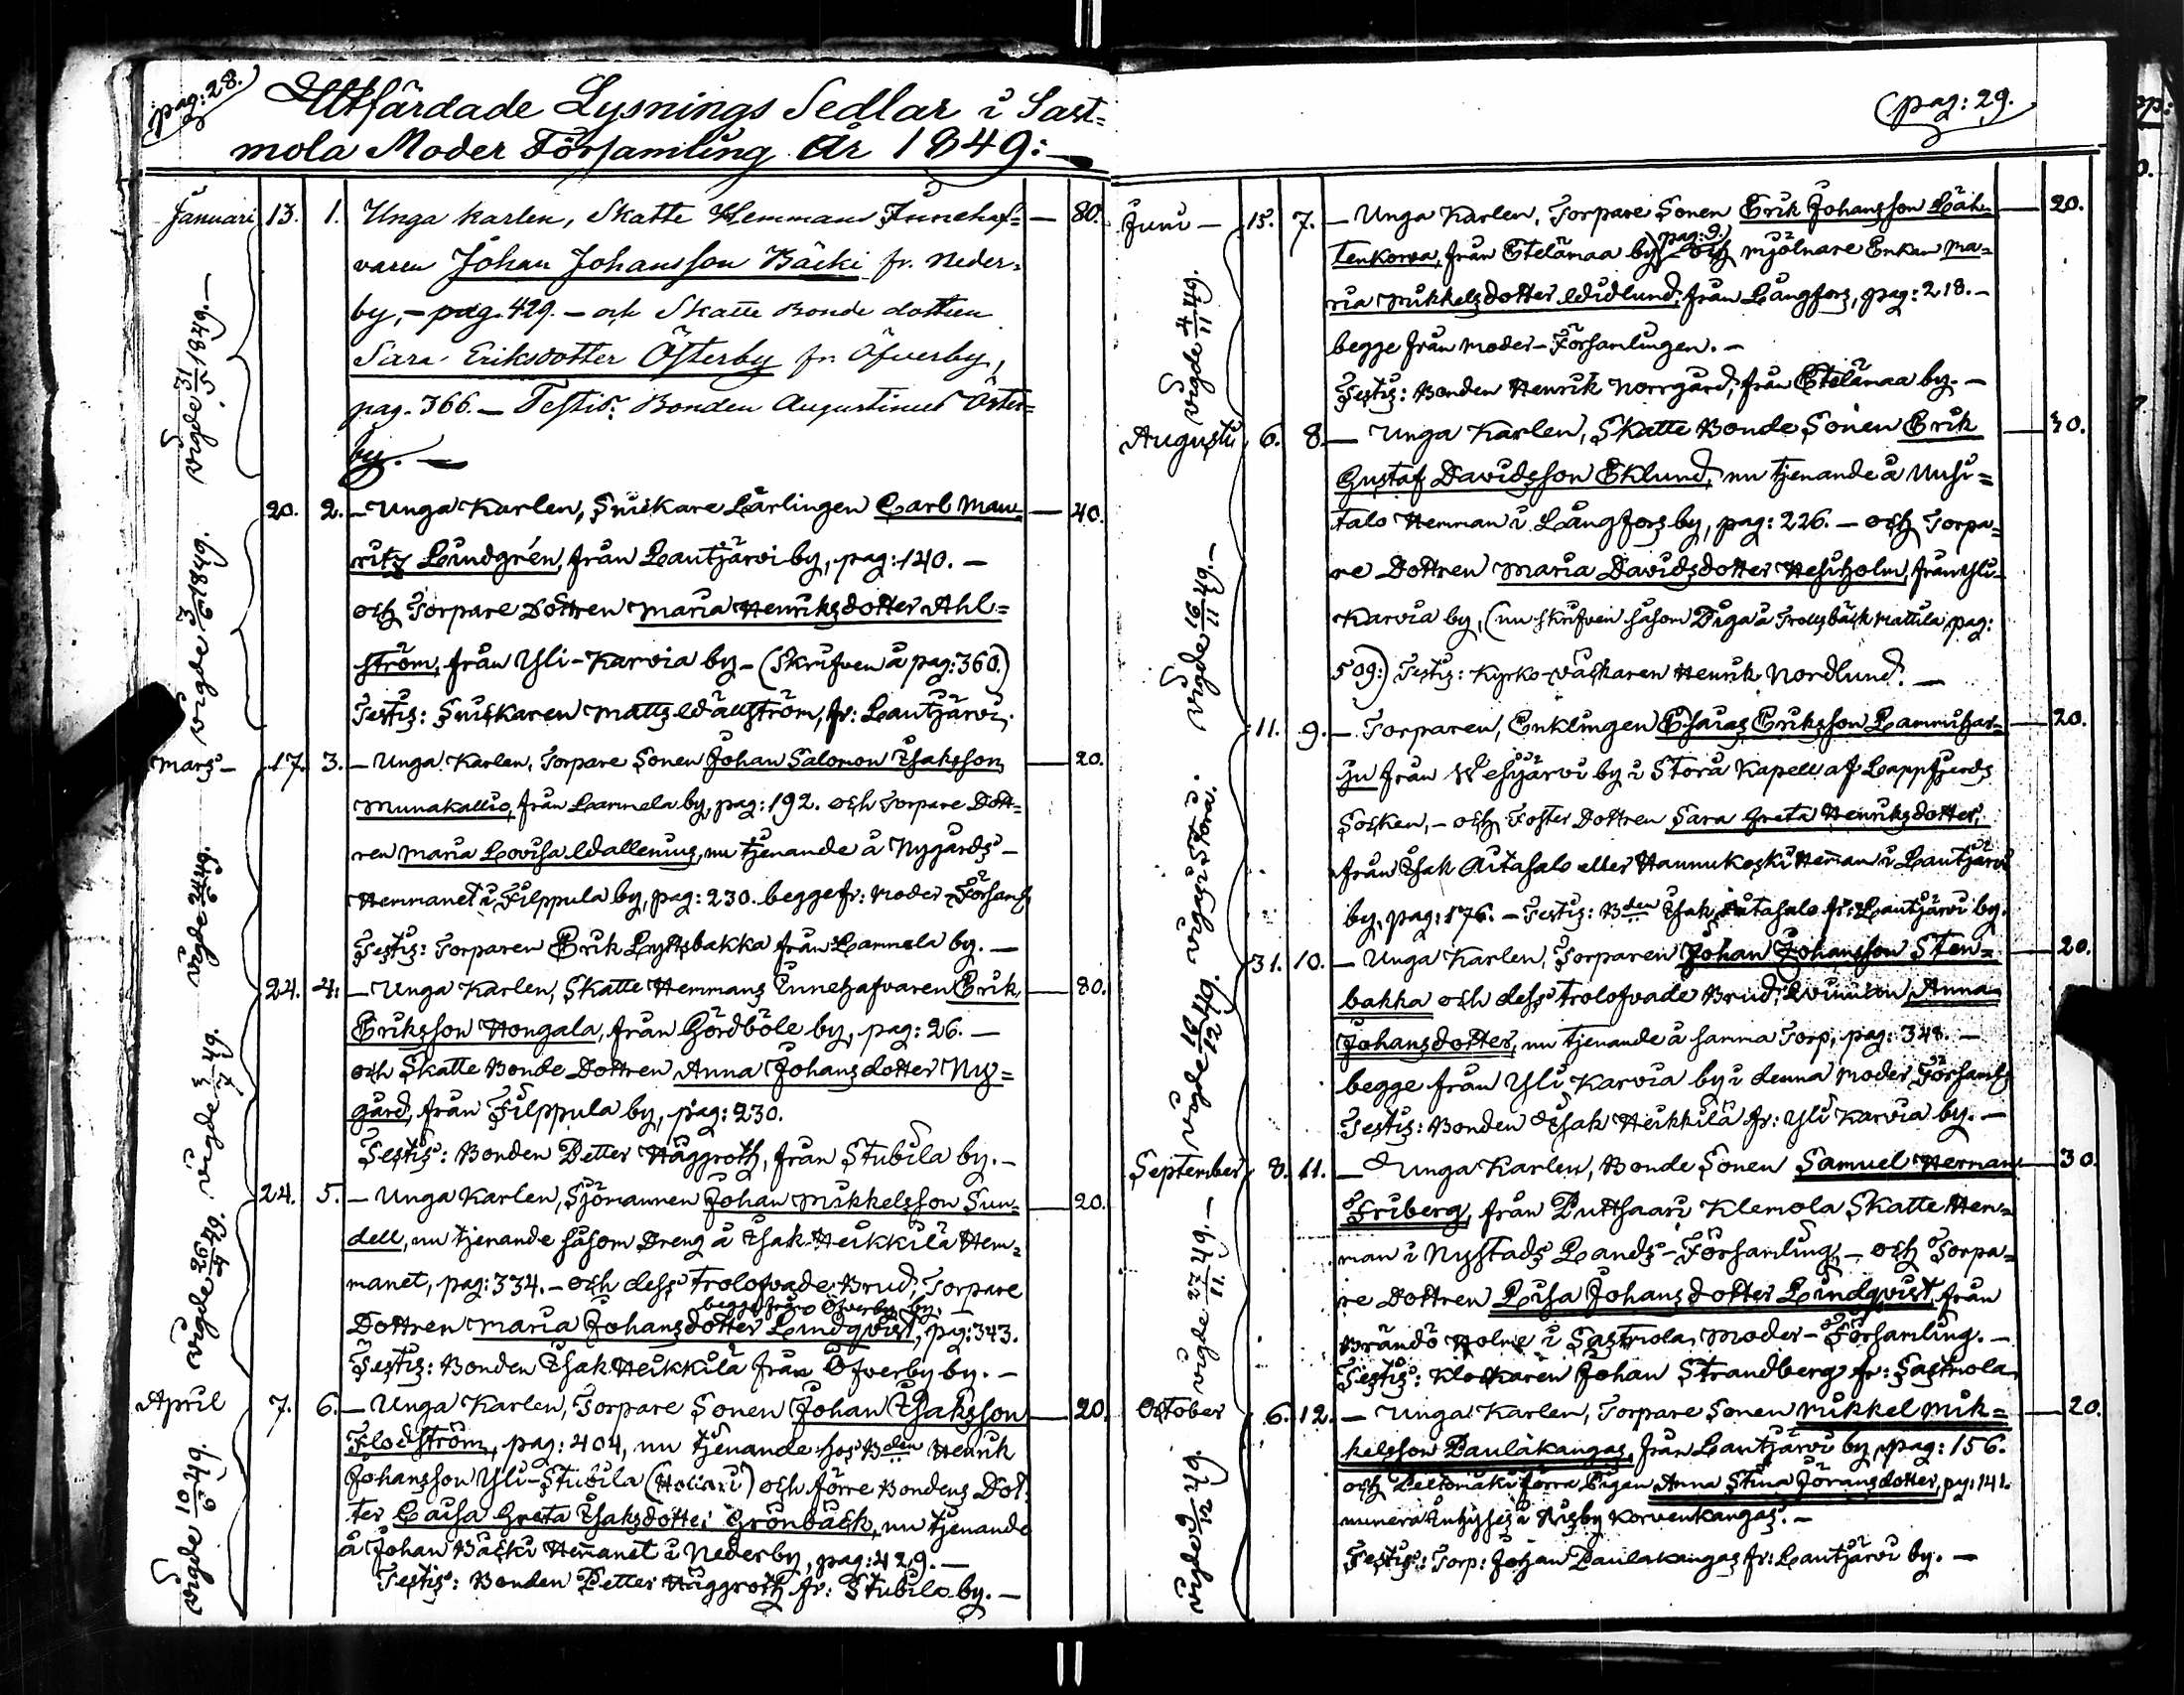 pag: 28.
Utfärdade Lysnings Sedlar i Sast=
mola Moder Församling År 1849:—
Januari 13. 1. Unga karlen, Skatte Hemmans Innehaf= — 80.
varen Johan Johansson Bäcki fr. Neder=
by, – pag. 429. – och Skatte Bonde dottren
Sara Eriksdotter Österby fr. Öfverby,
pag. 366. – Testis: Bonden Augustinus Öster=
by. —
vigde 31/5 1849. —
20. 2. – Unga Karlen, Snickare Lärlingen Carl Mau= — 40.
ritz Lindgrén, från Lautjärvi by, pag: 140. –
och Torpare Dottren Maria Henriksdotter Ahl=
ström, från Yli-Karvia by – (Skrifven å pag: 360.)
Testis: Snickaren Matts Wällström, fr: Lautjärvi.
Mars – 17. 3. – Unga Karlen, Torpare Sonen Johan Salomon Isaksson — 20.
Munakallio, från Lammela by, pag: 192. och Torpare Dott=
ren Maria Lovisa Wallenius, nu tjenande å Nygårds –
Hemmanet i Filppula by, pag: 230. begge fr: Moder – Församl.
Testis: Torparen Erik Lyttsbakka från Lammela by. —
24. 4. – Unga Karlen, Skatte Hemmans Innehafvaren Erik — 80.
Eriksson Hongala, från Gördböle by, pag: 26. —
och Skatte Bonde Dottren Anna Johansdotter Ny=
gård, från Filppula by, pag: 230.
Testis: Bonden Petter Häggroth, från Stubila by. –
24. 5. – Unga Karlen, Sjömannen Johan Mikkelsson Sun= — 20.
dell, nu tjenande såsom Dreng å Isak Heikkilä Hem=
manet, pag: 334. – och dess trolofvade Brud, Torpare
begge från Öfverby by.
Dottren Maria Johansdotter Lindqvist, pag: 343.
Testis: Bonden Isak Heikkilä från Öfverby by. –
April 7. 6. – Unga Karlen, Torpare Sonen Johan Isaksson — 20.
Flodström, pag: 404, nu tjenande hos Bden Henrik
Johansson Yli-Stubila och förre Bondens Dot=
ter Caisa Greta Isaksdotter Grönbäck, nu tjenande
å Johan Bäcki Hemanet i Nederby, pag: 429. —
Testis: Bonden Petter Häggroth fr: Stubila by. –
(pag: 29.
Juni – 15. 7. – Unga Karlen, Torpare Sonen Erik Johansson Läh= — 20.
pag: 9.)
tenkorva, från Etelämaa by) och mjölnare Enkan Ma=
ria Mikkelsdotter Widlund, från Långfors, pag: 218. –
begge från Moder – Församlingen. –
Testis: Bonden Henrik Norrgård, från Etelämaa by. –
Augusti 6. 8. — Unga Karlen, Skatte Bonde Sonen Erik — 40.
Gustaf Davidsson Eklund, nu tjenande å Uusi=
talo Hemman i Långfors by, pag: 226. – och Torpa=
re Dottren Maria Davidsdotter från Yli-
Karvia by, (nu skrifven såsom Piga å Trollsbäck Mattila, pag:
509:) Testis: Kyrko-väcktaren Henrik Nordlund. —
11. 9. – Torparen, Enklingen Esaias Eriksson Lamminhar= — 20.
ju från Wesijärvi by i Storå Kapell af Lappfjerds
Socken, – och Foster Dottren Sara Greta Henriksdotter,
från Isak Aitasalo eller Hannukoski Heman i Lautjärvi
by, pag: 176. – Testis: Bden Isak Aitasalo fr: Lautjärvi by.
31. 10. – Unga Karlen, Torparen Johan Johansson Sten= — 20.
bakka och dess trolofvade Brud, Qvinnan Anna
Johansdotter, nu tjenande å samma Torp, pag: 348. –
begge från Yli Karvia by i denna Moder Församl.
Testis: Bonden Isak Heikkilä fr: Yli Karvia by. –
September 8. 11. – Unga Karlen, Bonde Sonen Samuel Herman — 30.
Friberg, från Puttsaari Klemola Skatte Hem=
man i Nystads Lands – Församling, – och Torpa=
re Dottren Lisa Johansdotter Lindqvist, från
Brändö Holme i Sastmola Moder – Församling. –
Testis: Klockaren Johan Strandberg fr: Sastmola
October 6. 12. – Unga Karlen, Torpare Sonen Mikkel Mik= — 20.
kelsson Paulakangas, från Lautjärvi by, pag: 156.
och förra Pigan Anna Stina Göransdotter, pag: 141.
Korvenkangas. –
Testis: Torp: Johan Paulakangas fr: Lautjärvi by. —